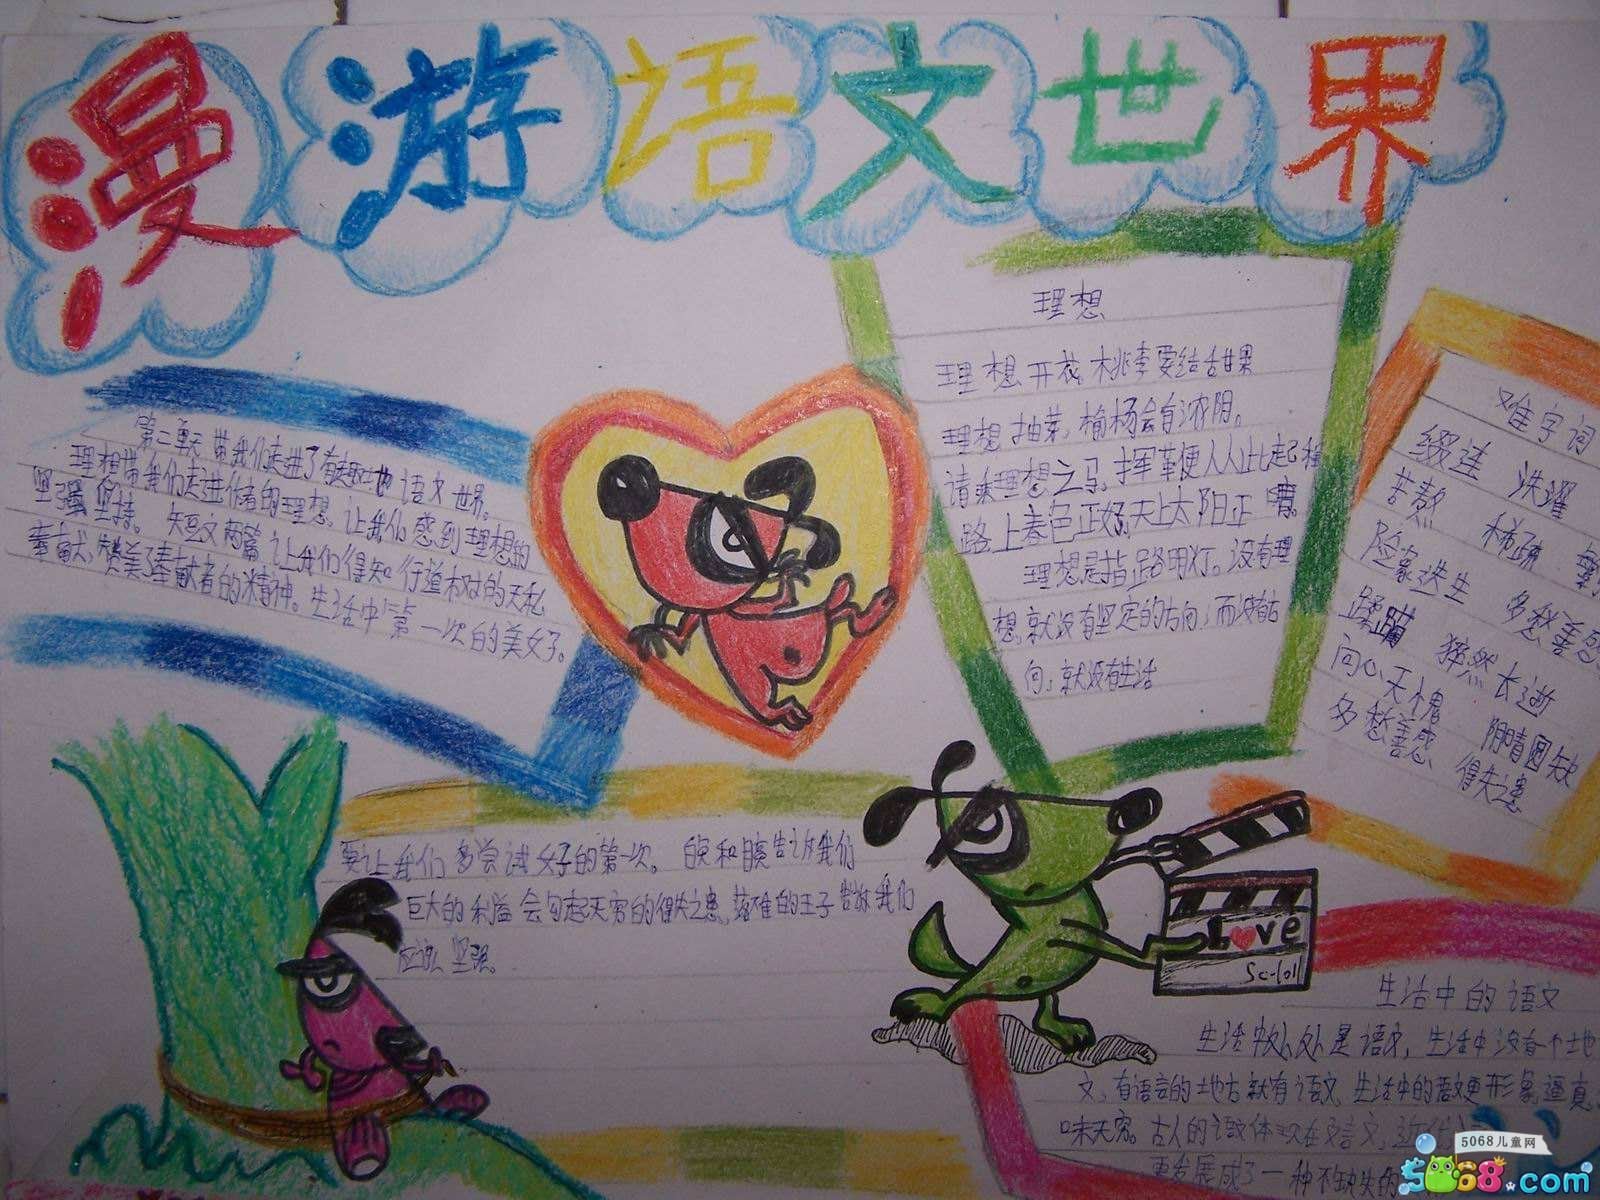 漫游语文世界
第二单元带我们走进了有趣地语文世界。
理想带我们走进作者的理想,让我们感到理想的
坚强 坚持。 短文两篇让我们得知行道树的无私
奉献,赞美了奉献者的精神。生活中第一次的美好。
要让我们多尝试好的第一次。 告诉我们
巨大的利益会勾起无穷的得失之患,落难的王子告诉我们
应该坚强。
理想
理想开花,桃李要结甜果
理想抽芽,榆杨会有浓阴。
请乘理想之马,挥革便从此起程
路上春色正好,天上太阳正晴。
理想是指路明灯。没有理
想,就没有坚定的方向;而没有方
向,就没有生活
难字词
缀连 洗濯
苦熬 稀疏
险象迭生 多愁善感
蹂躏 猝然长逝
问心无愧 阴晴圆缺
多愁善感 得失之患
Love
Sc-lol
生活中的语文
生活中处处是语文,生活中没有个地
文,有语言的地方就有语文,生活中的语文更形象,逼真,
味无穷。古人的语文体现在文言文,近代
更发展成了一种不缺失的
5068儿童网
5068.com